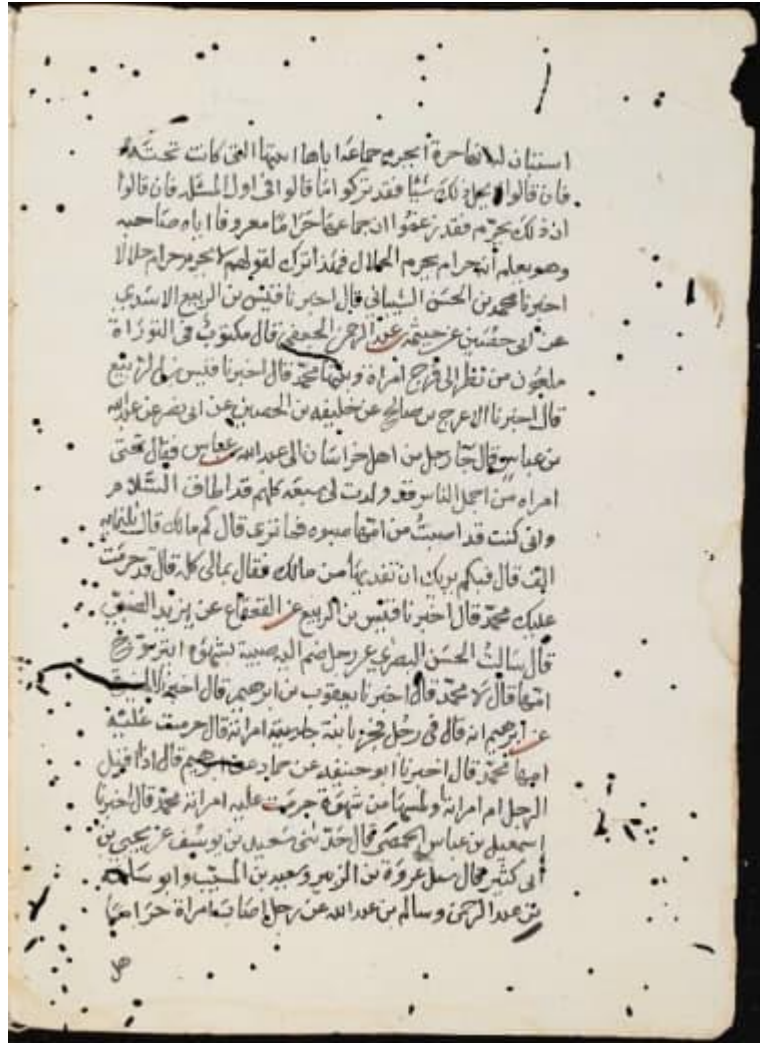 جماعه اياها ابنتها التي كانت تحته
فان قالوا ذلك شيا فقد تركوا ما قالوا في اول المسئله فان قالوا
ان ذلك يحرم فقد زعموا ان جماعها حراما معروفا اياه صاحبه
وهو يعلم أنه حرام يحرم الحلال فهذا ترك لقولهم لا يحرم حرام حلالا
اخبرنا محمد بن الحسن الشيباني قال اخبرنا قيس بن الربيع الاسدي
عن ابي حصين عن خيثمه عبد الرحمن الجعفي قال مكتوب في التوراة
ملعون من نظر الى فرج امراه وبنتها محمد قال اخبرنا قيس بن الربيع
قال اخبرنا الاعرج بن صالح عن خليفه بن الحصين عن ابي نصر عن عبد الله
بن عباس قال جا رجل من اهل خراسان الى عبد الله عباس فقال تحتى
امراه من اجمل الناس وولدت لى سبعه كلهم قد اطاق السلاح
وانى كنت قد اصبت من امها صبوه فما ترى قال كم مالك قال ثلثمايه
الف قال فبكم يريك ان تفديها من مالك فقال بمالى كله قال قد حرمت
عليك محمد قال اخبرنا قيس بن الربيع عن القعقاع عن يزيد الضبي
قال سالت الحسن البصري عن رجل ضم اليه صبية بشهوه ايتزوج
امها قال لا محمد قال اخبرنا يعقوب بن ابرهيم قال اخبرنا
عن ابرهيم انه قال في رجل فجر بابنة جاريته امراته قال حرمت عليه
امها محمد قال اخبرنا ابو حنيفه عن حماد عن ابرهيم قال اذا قبل
الرجل ام امراته او لمسها من شهوة حرمت عليه امراته محمد قال اخبرنا
اسمعيل بن عباس الحمصي قال حدثني سعيد بن يوسف عن يحيى بن
ابى كثير قال سيل عروة بن الزبير وسعيد بن المسيب وابو سلمه
بن عبد الرحمن وسالم بن عبد الله عن رجل اصاب امراة حراما
هل